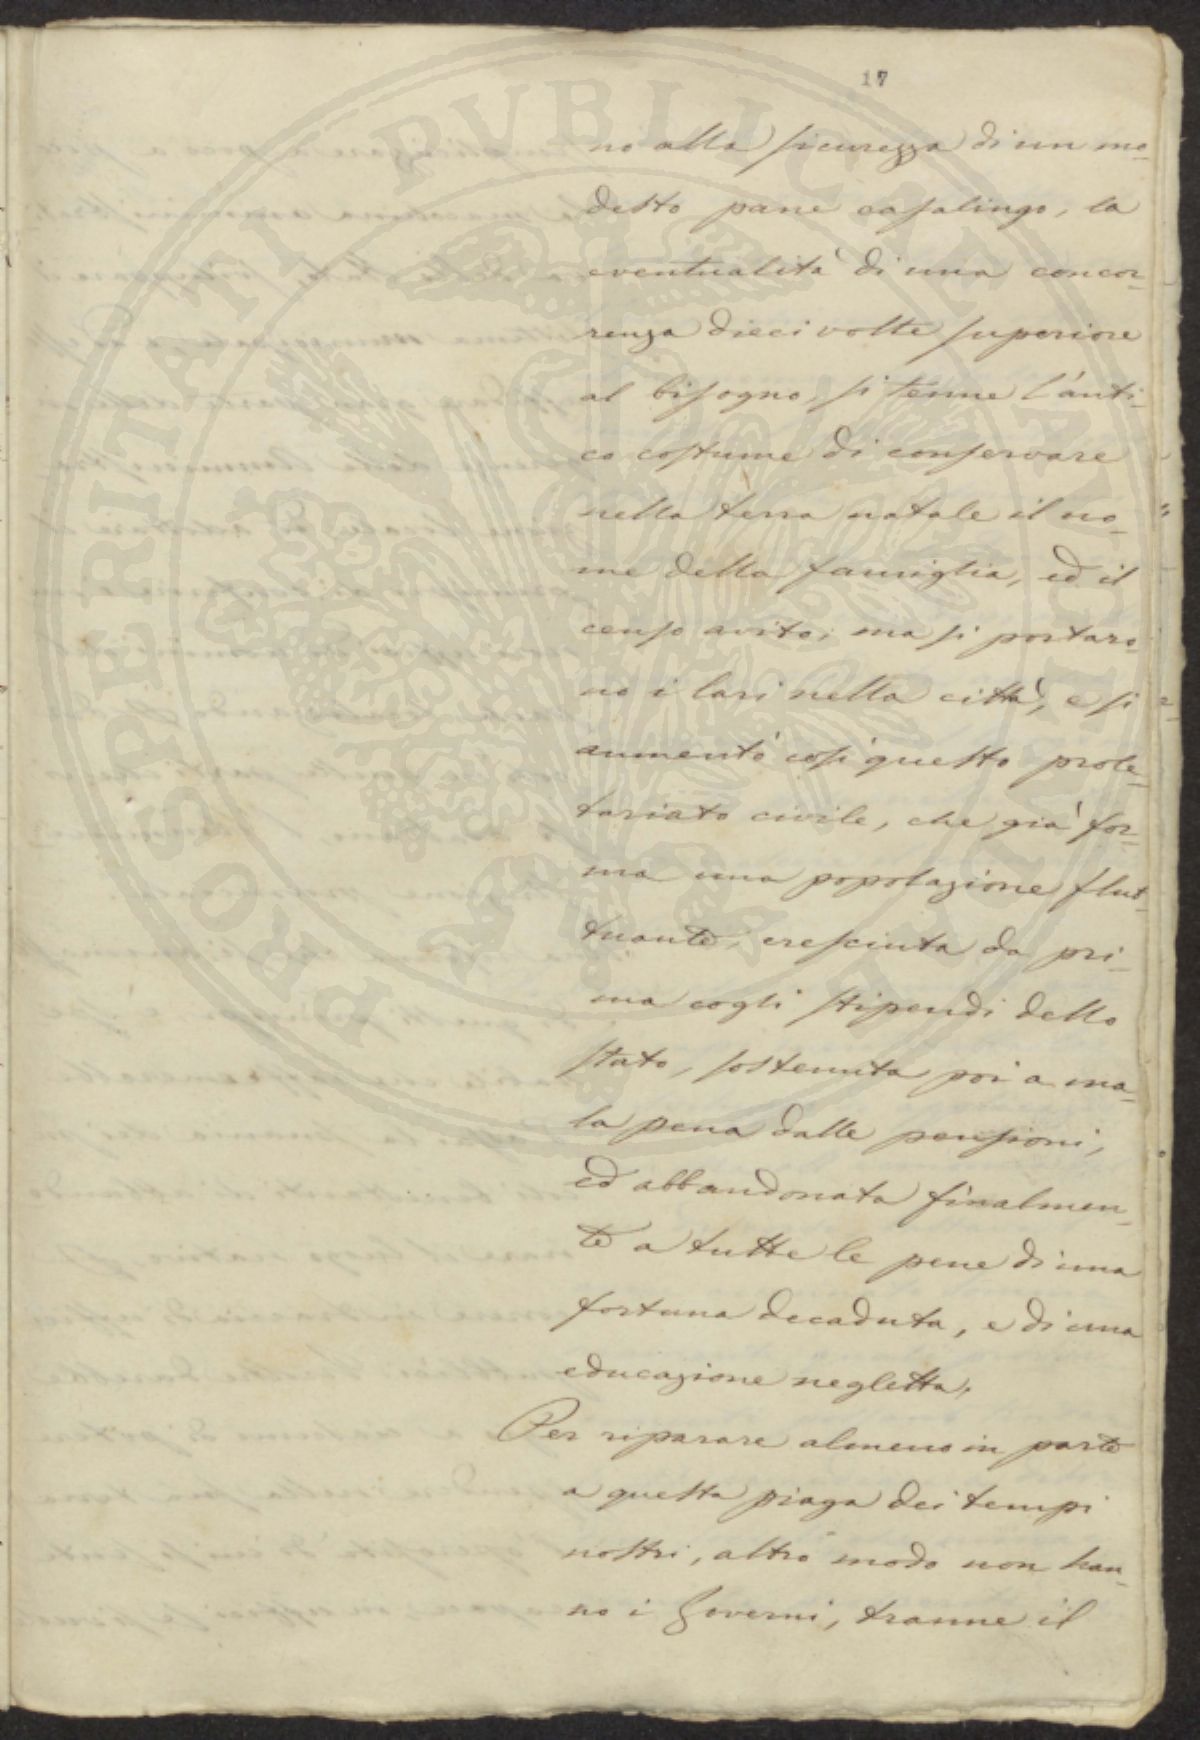 17
no alla sicurezza di un mo-
desto pane casalingo, la
eventualità di una concor-
renza dieci volte superiore
al bisogno, si tenne l'anti-
co costume di conservare
nella terra natale il no-
me della famiglia, ed il
censo avito; ma si portaro-
no i lari nella città, e si
aumentò così questo prole-
tariato civile, che già for-
ma una popolazione flut-
tuante, cresciuta da pri-
ma cogli stipendi dello
stato, sostenuta poi a ma-
la pena dalle pensioni,
ed abbandonata finalmen-
te a tutte le pene di una
fortuna decaduta, e di una
educazione negletta.
Per riparare almeno in parte
a questa piaga dei tempi
nostri, altro modo non han-
no i Governi, tranne il
PROSPERITATI PVBLICAE